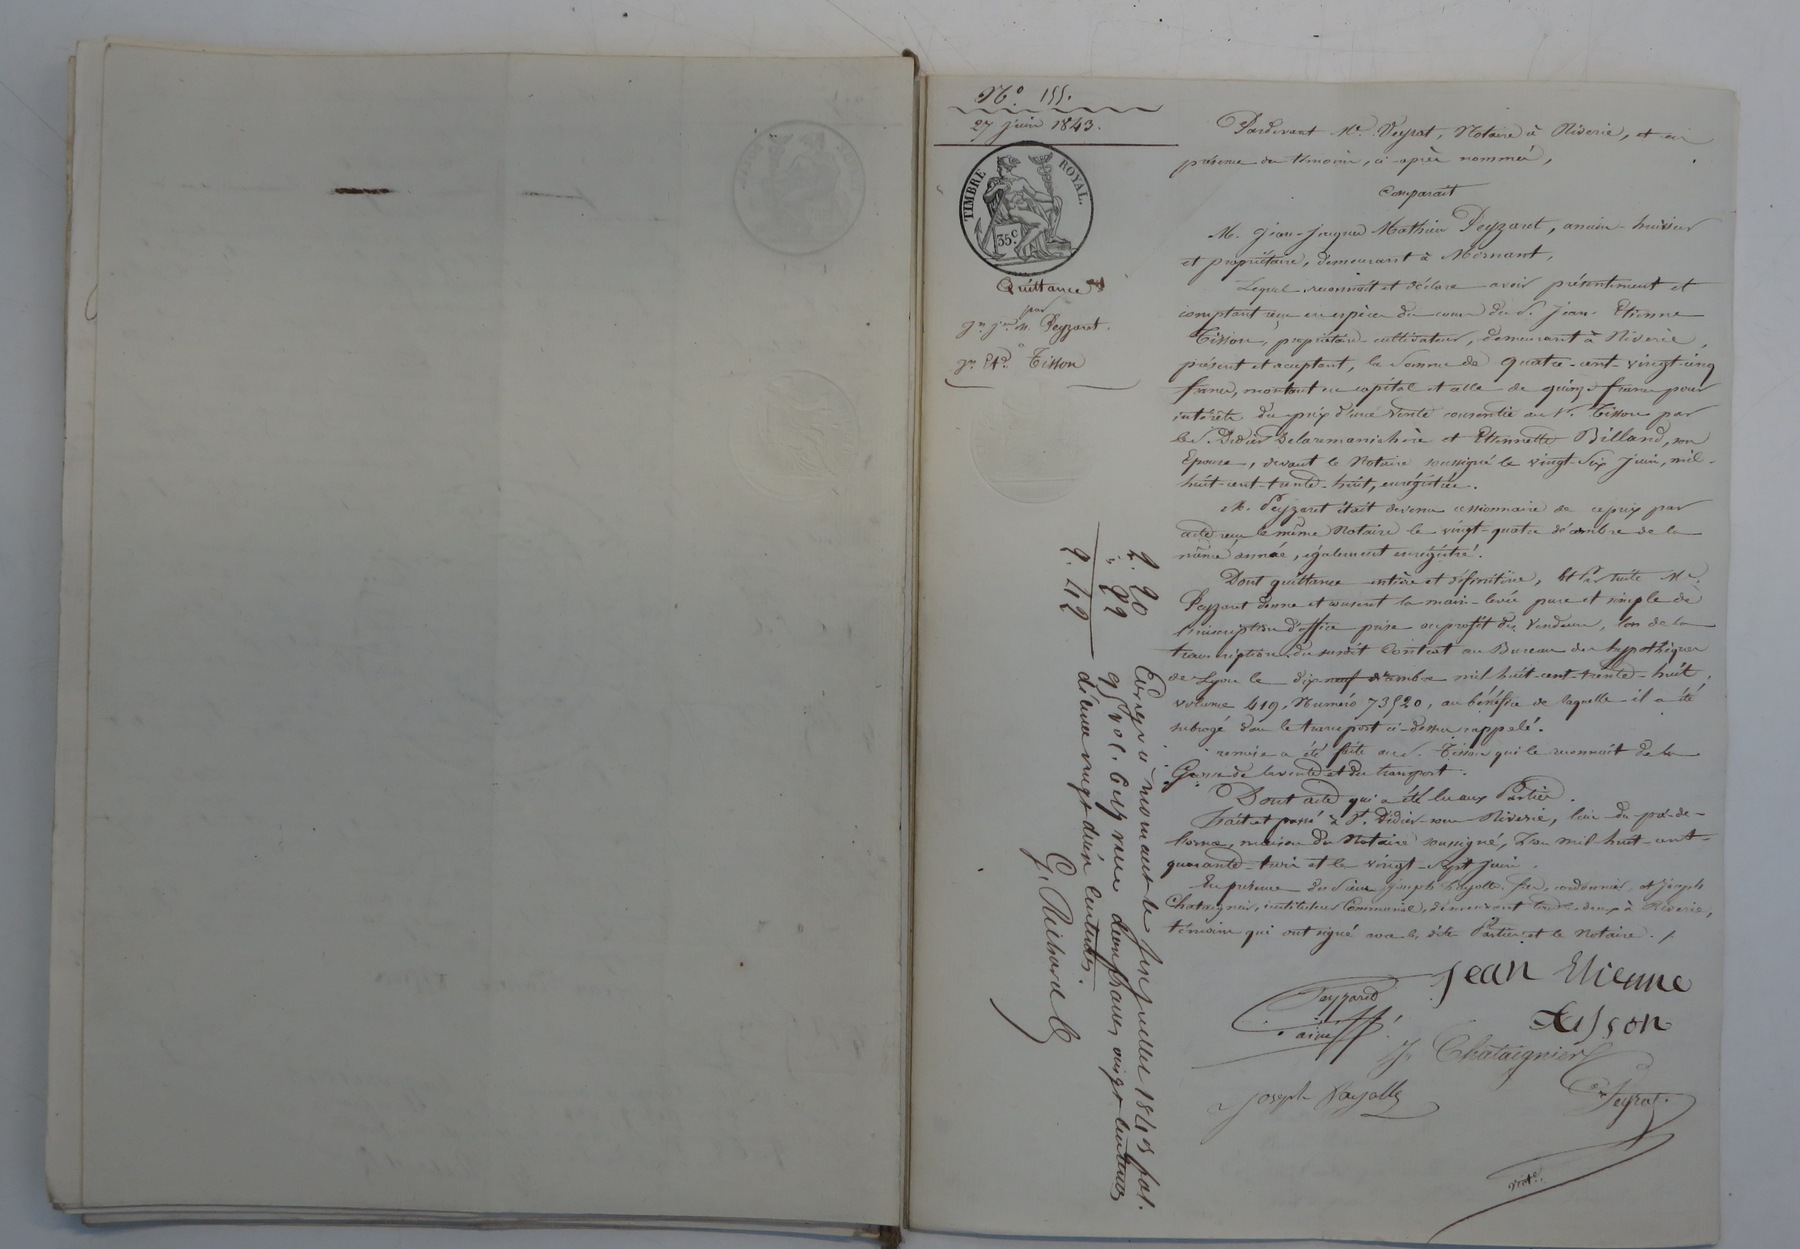 N.° 155.
27 juin 1843.
TIMBRE ROYAL.
35 c.
Quittance
par
Jn Jes M. Peyzaret.
à
Jn Etne Tisson
Pardevant Me. Peyrat, Notaire à Riverie, et en
présence des témoins, ci-après nommés,
Comparait
M. Jean-Jacques Mathieu Peyzaret, ancien huissier
et propriétaire, demeurant à Mornant,
Lequel reconnait et déclare avoir présentement et
comptant reçu en espèces du cours du S. Jean-Etienne
Tisson, propriétaire-cultivateur, demeurant à Riverie,
présent et acceptant, la somme de quatre-cent-vingt-cinq
francs, montant en capital et celle de quinze francs pour
intérêts du prix d'une vente consentie au S. Tisson par
le S. Didier Delaremanichère et Etiennette Billand, son
Epouse, devant le Notaire soussigné le vingt-six juin, mil-
huit-cent-trente-huit, enregistrée.
M. Peyzaret était devenu cessionnaire de ce prix par
acte reçu le même Notaire le vingt-quatre décembre de la
même année, également enregistré.
Dont quittance entière et définitive, Et par suite Mr.
Peyzaret donne et consent la main-levée pure et simple de
l'inscription d'office prise au profit des Vendeurs, lors de la
transcription du susdit Contrat au Bureau des hypothèques
de Lyon le dix-neuf décembre mil huit-cent-trente-huit,
volume 419, Numéro 73520, au bénéfice de laquelle il a été
subrogé dans le transport ci-dessus rappelé.
remise a été faite au S. Tisson qui le reconnait de la
Grosse de la vente et du transport.
Dont acte qui a été lu aux Parties.
Fait et passé à St. Didier-sous-Riverie, lieu du pré-de-
lorme, maison du Notaire soussigné, L'an mil huit-cent-
quarante-trois et le vingt-sept juin.
En présence des Sieurs Joseph Fayolle, fils, cordonnier, et Joseph
Chataignier, instituteur Communal, demeurant tous deux à Riverie,
témoins qui ont signé avec les dites Parties et le Notaire. /
Jean Etienne
tisson
Peyzaret
ainé
J. Chataignier
Joseph Fayolle
Peyrat
Note
2. 20
" 22
2. 42
Enregistré à mornant le cinq juillet 1843 fol.
9 vol. Cases reçu deux francs vingt centimes
dixme vingt deux centimes.
G. Richard